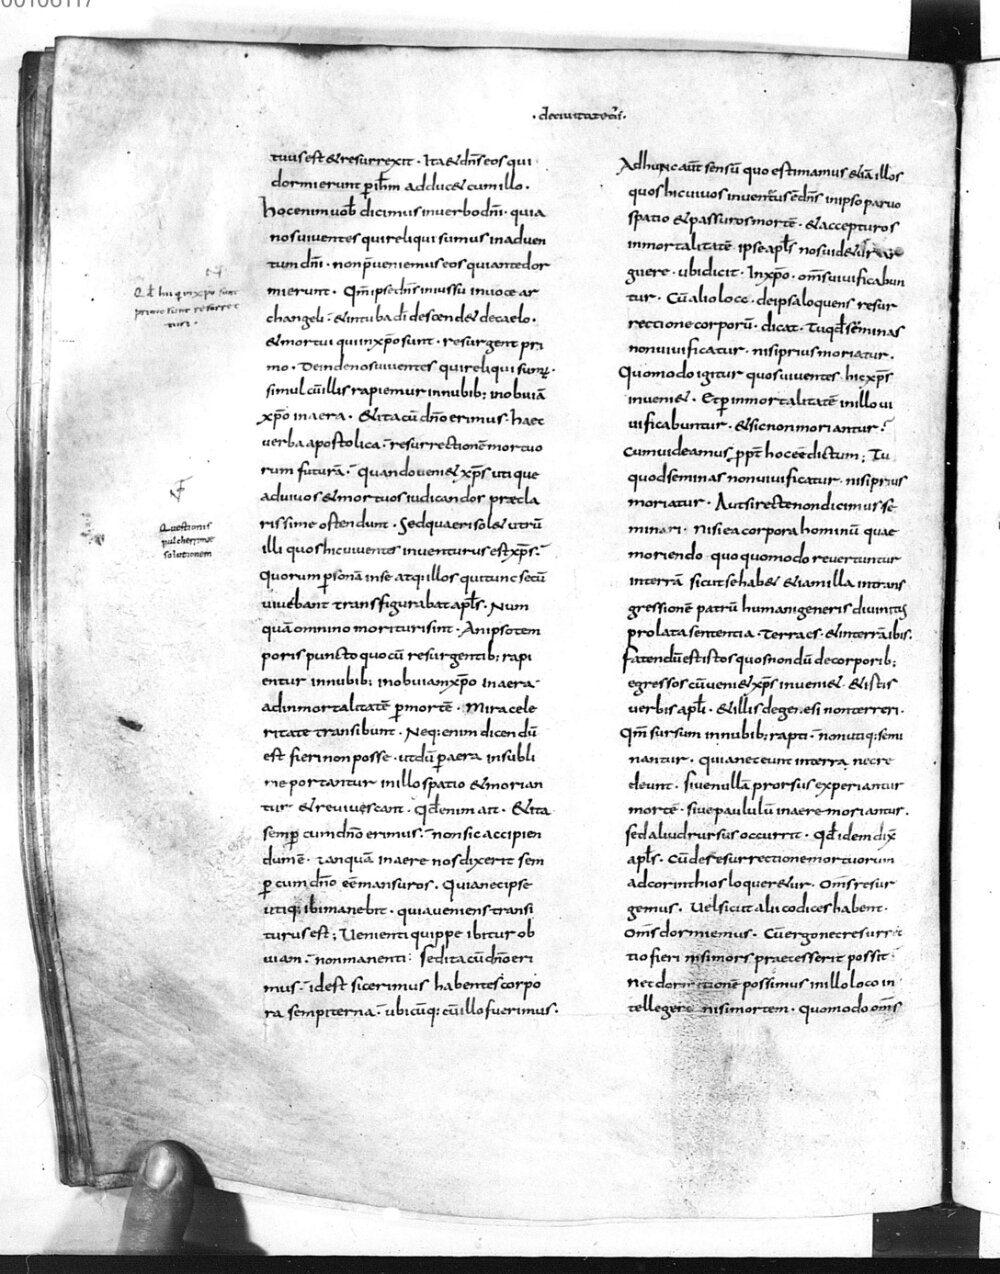 00106117
·deciuitatedī·
tuus est & resurrexit · Ita & dn̄s eos qui
dormierunt p ih̄m adduc& cum illo ·
hoc enim uob̄ dicimus in uerbo dn̄i · quia
nos uiuentes qui reliqui sumus in aduen
tum dn̄i · non p̄ueniemus eos qui ante dor
mierunt · Qm̄ ipse dn̄s in iussu in uoce ar
changeli · & in tuba dī descend& de caelo ·
& mortui qui in xp̄o sunt · resurgent pri
mo · Deinde nos uiuentes qui reliqui sum; ·
simul cū illis rapiemur in nubib; in obuiā
xp̄o in aera · & ita cū dn̄o erimus · haec
uerba apostolica · resurrectionē mortuo
rum futurā · Quando ueni& xp̄s utique
ad uiuos & mortuos iudicandos præcla
rissime ostendunt · Sed quaeri sol& utrū
illi quos hic uiuentes inuenturus est xp̄s ·
Quorum psonā in se atq; illos qui tunc secū
uiuebant transfigurabat apl̄s · Num
quā omnino morituri sint · An ipso tem
poris puncto quo cū resurgentib; rapi
entur in nubib; in obuiam xp̄o in aera
ad inmortalitatē p mortē · mira cele
ritate transibunt · Neq; enim dicendū
est fieri non posse · ut dū p aera in subli
me portantur in illo spatio & morian
tur & reuiuescant · Qd̄ enim ait · & ita
semp cum dn̄o erimus · non sic accipien
dum ē · tanquā in aere nos dixerit sem
p cum dn̄o eē mansuros · Quia nec ipse
utiq; ibi manebit · quia ueniens transi
turus est; Uenienti quippe ibitur ob
uiam · non manenti · sed ita cū dn̄o eri
mus · id est sic erimus habentes corpo
ra sempiterna · ubicūq; cū illo fuerimus ·
Ad hunc aūt sensū quo estimamus &iā illos
quos hic uiuos inuenturus ē dn̄s in ipso paruo
spatio & passuros mortē · & accepturos
inmortalitatē ipse apl̄s nos uid&ur
guere · ubi dicit · In xp̄o · om̄s uiuificabun
tur · Cū alio loco · de ipsa loquens resur
rectione corporū · dicat · Tu qd̄ seminas
non uiuificatur · nisi prius moriatur ·
Quomodo igitur quos uiuentes hic xp̄s
inueni& · Et p inmortalitatē in illo ui
uificabuntur · & si non moriantur ·
Cum uideamus ppt̄ hoc eē dictum; Tu
quod seminas non uiuificatur · nisi prius
moriatur · Aut si recte non dicimus se
minari · nisi ea corpora hominū quae
moriendo quoquo modo reuertuntur
in terrā sicut se hab& &iam illa in trans
gressionē patrū humani generis diuinitus
prolata sententia · Terra es · & in terrā ibis ·
fatendū est istos quos nondū de corporib;
egressos cū ueni& xp̄s inueni& · & istis
uerbis apl̄i · & illis de genesi non teneri ·
Qm̄ sursum in nubib; rapti · non utiq; semi
nantur · quia nec eunt in terra nec re
deunt · siue nullā prorsus experiantur
mortē · siue paululū in aere moriantur ·
sed aliud rursus occurrit · Qd̄ idem dix̄
apl̄s · Cū de resurrectione mortuorum
ad corinthios loquer&ur · Om̄s resur
gemus · Uel sicut alii codices habent ·
Om̄s dormiemus · Cū ergo nec resurrec
tio fieri nisi mors praecesserit possit ·
nec dormitionē possimus in illo loco in
tellegere nisi mortem · quomodo om̄s
Qd̄ hii qui in xp̄o sunt
primo sunt resurrec
turi ·
Questionis
pulcherrimae
solutionem